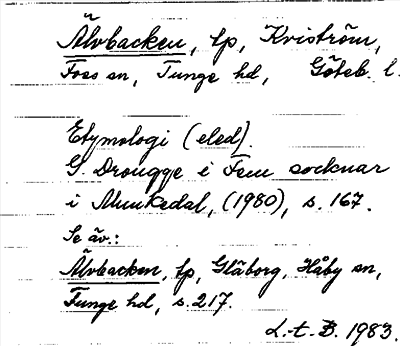 Älvbacken, tp, Kviström,
Foss sn, Tunge hd, Göteb. l.
Etymologi (eled).
G. Drougge i Fem socknar
i Munkedal, (1980), s. 167.
Se äv.:
Älvbacken, tp, Glåborg, Håby sn,
Tunge hd, s. 217.
L.t.B. 1983.